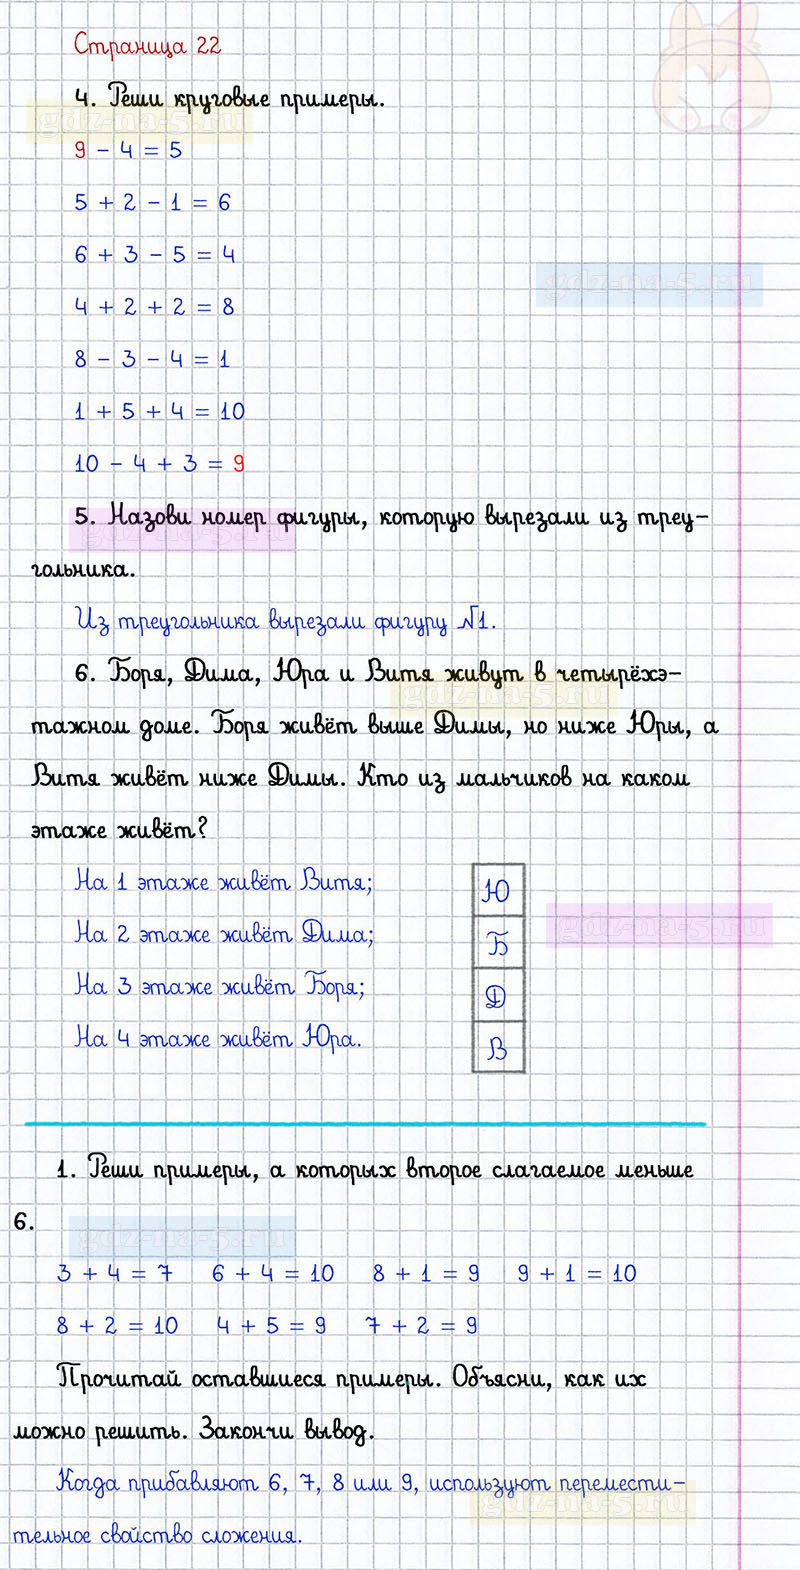 Страница 22
4. Реши круговые примеры.
gdz-na-5.ru
9 - 4 = 5
5 + 2 - 1 = 6
6 + 3 - 5 = 4
gdz-na-5.ru
4 + 2 + 2 = 8
8 - 3 - 4 = 1
1 + 5 + 4 = 10
10 - 4 + 3 = 9
5. Назови номер фигуры, которую вырезали из треу-
gdz-na-5.ru
гольника.
Из треугольника вырезали фигуру №1.
6. Боря, Дима, Юра и Витя живут в четырёхэ-
gdz-na-5.ru
тажном доме. Боря живёт выше Димы, но ниже Юры, а
Витя живёт ниже Димы. Кто из мальчиков на каком
этаже живёт?
На 1 этаже живёт Витя; Ю
На 2 этаже живёт Дима; Б
gdz-na-5.ru
На 3 этаже живёт Боря; Д
На 4 этаже живёт Юра. В
1. Реши примеры, а которых второе слагаемое меньше
6.
gdz-na-5.ru
3 + 4 = 7 6 + 4 = 10 8 + 1 = 9 9 + 1 = 10
8 + 2 = 10 4 + 5 = 9 7 + 2 = 9
Прочитай оставшиеся примеры. Объясни, как их
можно решить. Закончи вывод.
Когда прибавляют 6, 7, 8 или 9, используют перемести-
gdz-na-5.ru
тельное свойство сложения.